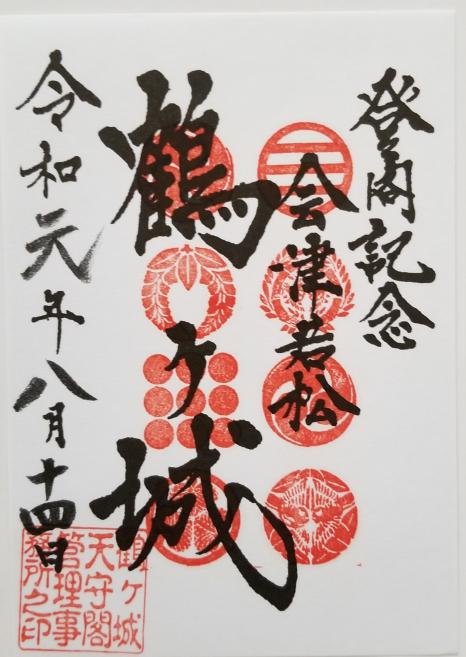 登閣記念
会津若松
鶴ヶ城
令和元年八月十四日
鶴ヶ城
天守閣
管理事
務所之印